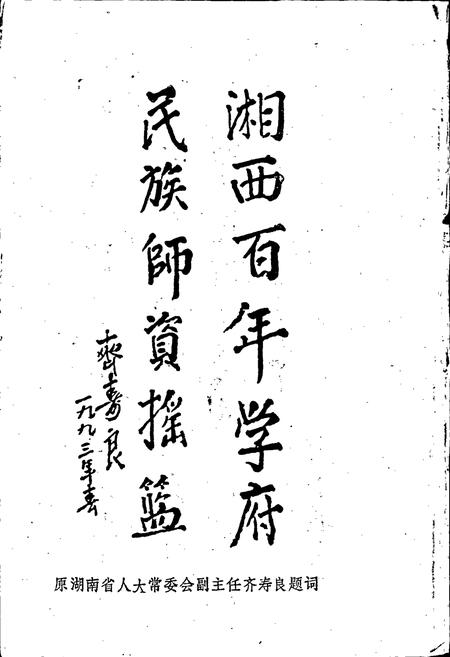 湘西百年学府
民族師資摇籃
齊壽良
一九九三年春
原湖南省人大常委会副主任齐寿良题词